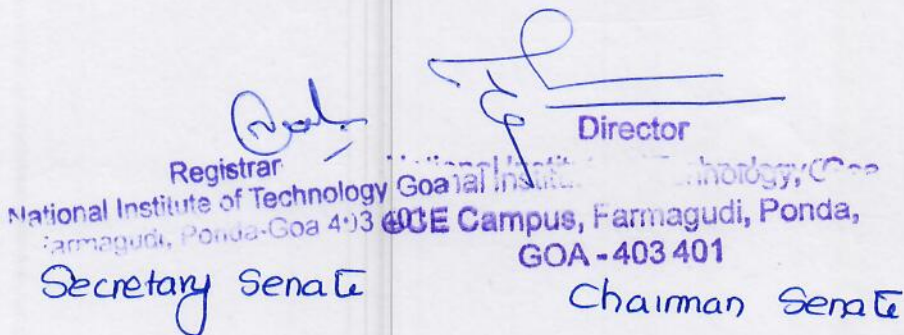 Registrar
National Institute of Technology Goa
Farmagudi, Ponda-Goa 403 401
Secretary Senate
Director
National Institute Technology, Goa
GCE Campus, Farmagudi, Ponda,
GOA - 403 401
Chairman Senate